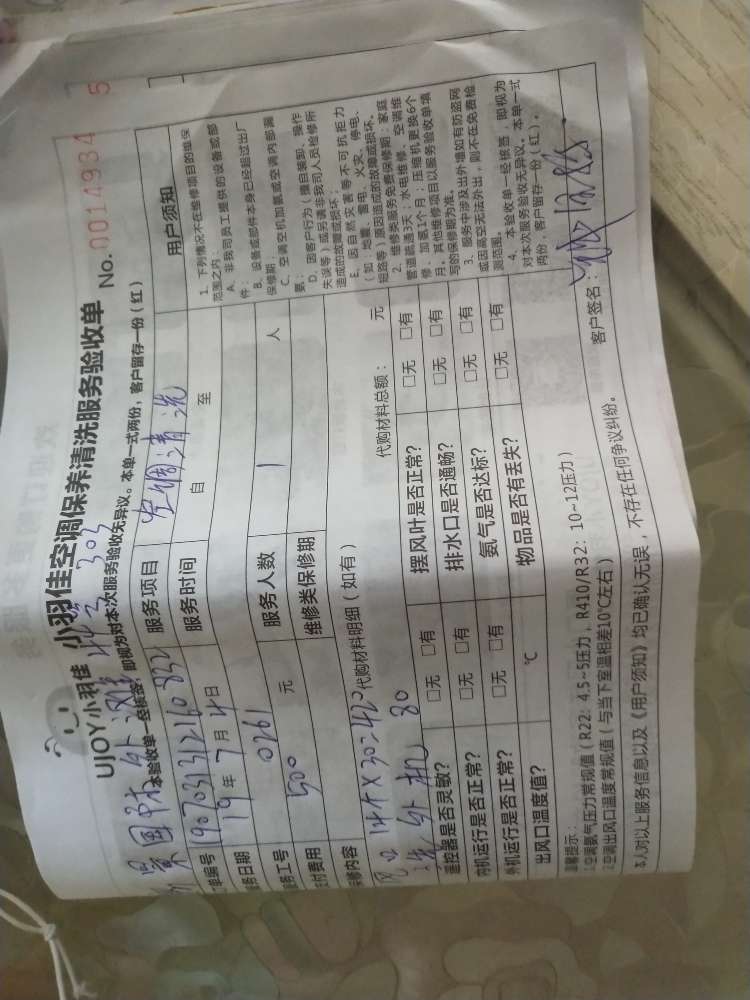 UJOY小羽佳 小羽佳空调保养清洗服务验收单 No. 0014934 5
303
本验收单一经核签，即视为对本次服务验收无异议。本单一式两份，客户留存一份（红）
单编号 190703131210832
服务项目 空调清洗
务日期 19年7月4日
服务时间 自 至
务工号 0261
服务人数 1 人
付费用 500 元
维修类保修期
修内容
代购材料明细（如有）
代购材料总额： 元
14个×30=420
外机 80
遥控器是否灵敏？ □无 □有
摆风叶是否正常？ □无 □有
内机运行是否正常？ □无 □有
排水口是否通畅？ □无 □有
外机运行是否正常？ □无 □有
氨气是否达标？ □无 □有
出风口温度值？ ℃
物品是否有丢失？ □无 □有
用户须知
1. 下列情况不在维修项目的维保
范围之内：
A. 非我司员工提供的设备或部
件；
B. 设备或部件本身已经超过出厂
保修期；
C. 空调空机加氨或空调内部漏
氨；
D. 因客户行为（擅自装卸、操作
失误等）或另请非我司人员检修所
造成的故障或损坏；
E. 因自然灾害等不可抗拒力
（如：地震、雷电、火灾、停电、
短路等）原因造成的故障或损坏。
2. 维修类服务免费保修期：家庭
管道疏通3天；水电维修、空调维
修、加氨1个月；压缩机更换6个
月。其他维修项目以服务验收单填
写的保修期为准。
3. 服务中涉及出外墙如有防盗网
或因高空无法外出，则不在免费检
测范围。
4. 本验收单一经核签，即视为
对本次服务验收无异议。本单一式
两份，客户留存一份（红）。
温馨提示：
1空调氨气压力常规值（R22：4.5~5压力，R410/R32：10~12压力）
2空调出风口温度常规值（与当下室温相差10℃左右）
本人对以上服务信息以及《用户须知》均已确认无误，不存在任何争议纠纷。
客户签名：